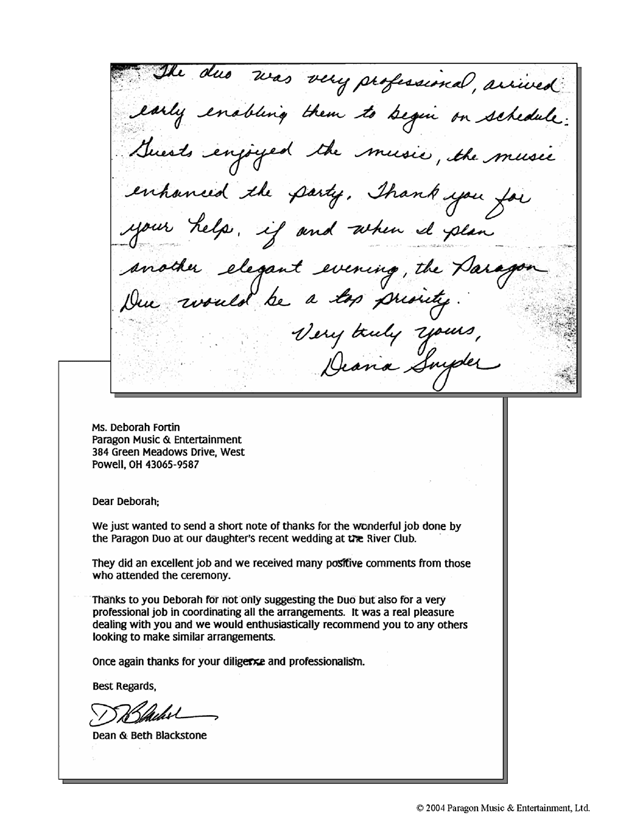 The duo was very professional, arrived
early enabling them to begin on schedule.
Guests enjoyed the music, the music
enhanced the party. Thank you for
your help, if and when I plan
another elegant evening, the Paragon
Duo would be a top priority.
Very truly yours,
Diana Snyder
Ms. Deborah Fortin
Paragon Music & Entertainment
384 Green Meadows Drive, West
Powell, OH 43065-9587
Dear Deborah;
We just wanted to send a short note of thanks for the wonderful job done by
the Paragon Duo at our daughter's recent wedding at the River Club.
They did an excellent job and we received many positive comments from those
who attended the ceremony.
Thanks to you Deborah for not only suggesting the Duo but also for a very
professional job in coordinating all the arrangements. It was a real pleasure
dealing with you and we would enthusiastically recommend you to any others
looking to make similar arrangements.
Once again thanks for your diligence and professionalism.
Best Regards,
D Blackst
Dean & Beth Blackstone
© 2004 Paragon Music & Entertainment, Ltd.